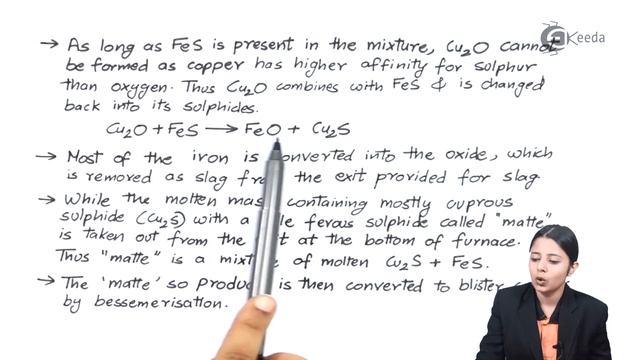 Keeda
→ As long as FeS is present in the mixture, Cu2O cannot
be formed as copper has higher affinity for sulphur
than oxygen. Thus Cu2O combines with FeS & is changed
back into its sulphides.
Cu2O + FeS → FeO + Cu2S
→ Most of the iron is converted into the oxide, which
is removed as slag the exit provided for slag.
→ While the molten containing mostly cuprous
sulphide (Cu2S) with a ferous sulphide called "matte"
is taken out from the at the bottom of furnace.
Thus "matte" is a of molten Cu2S + FeS.
→ The 'matte' so is then converted to blister
by bessemerisation.